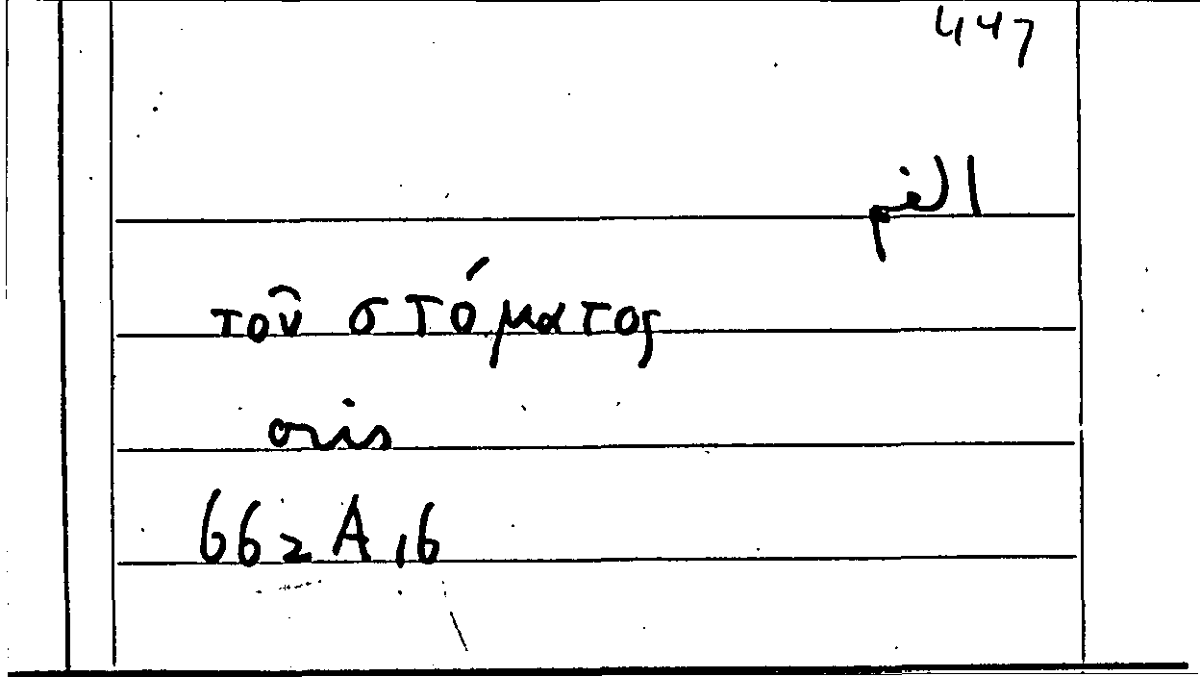 447
الفم
τοῦ στόματος
oris
662 A, 6